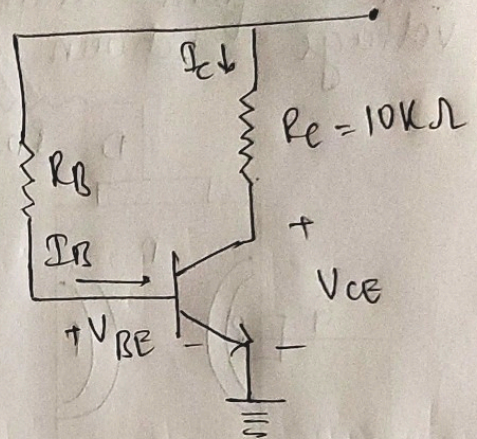 I_C ↓
R_C = 10KΩ
R_B
I_B
+
V_CE
+V_BE -
-